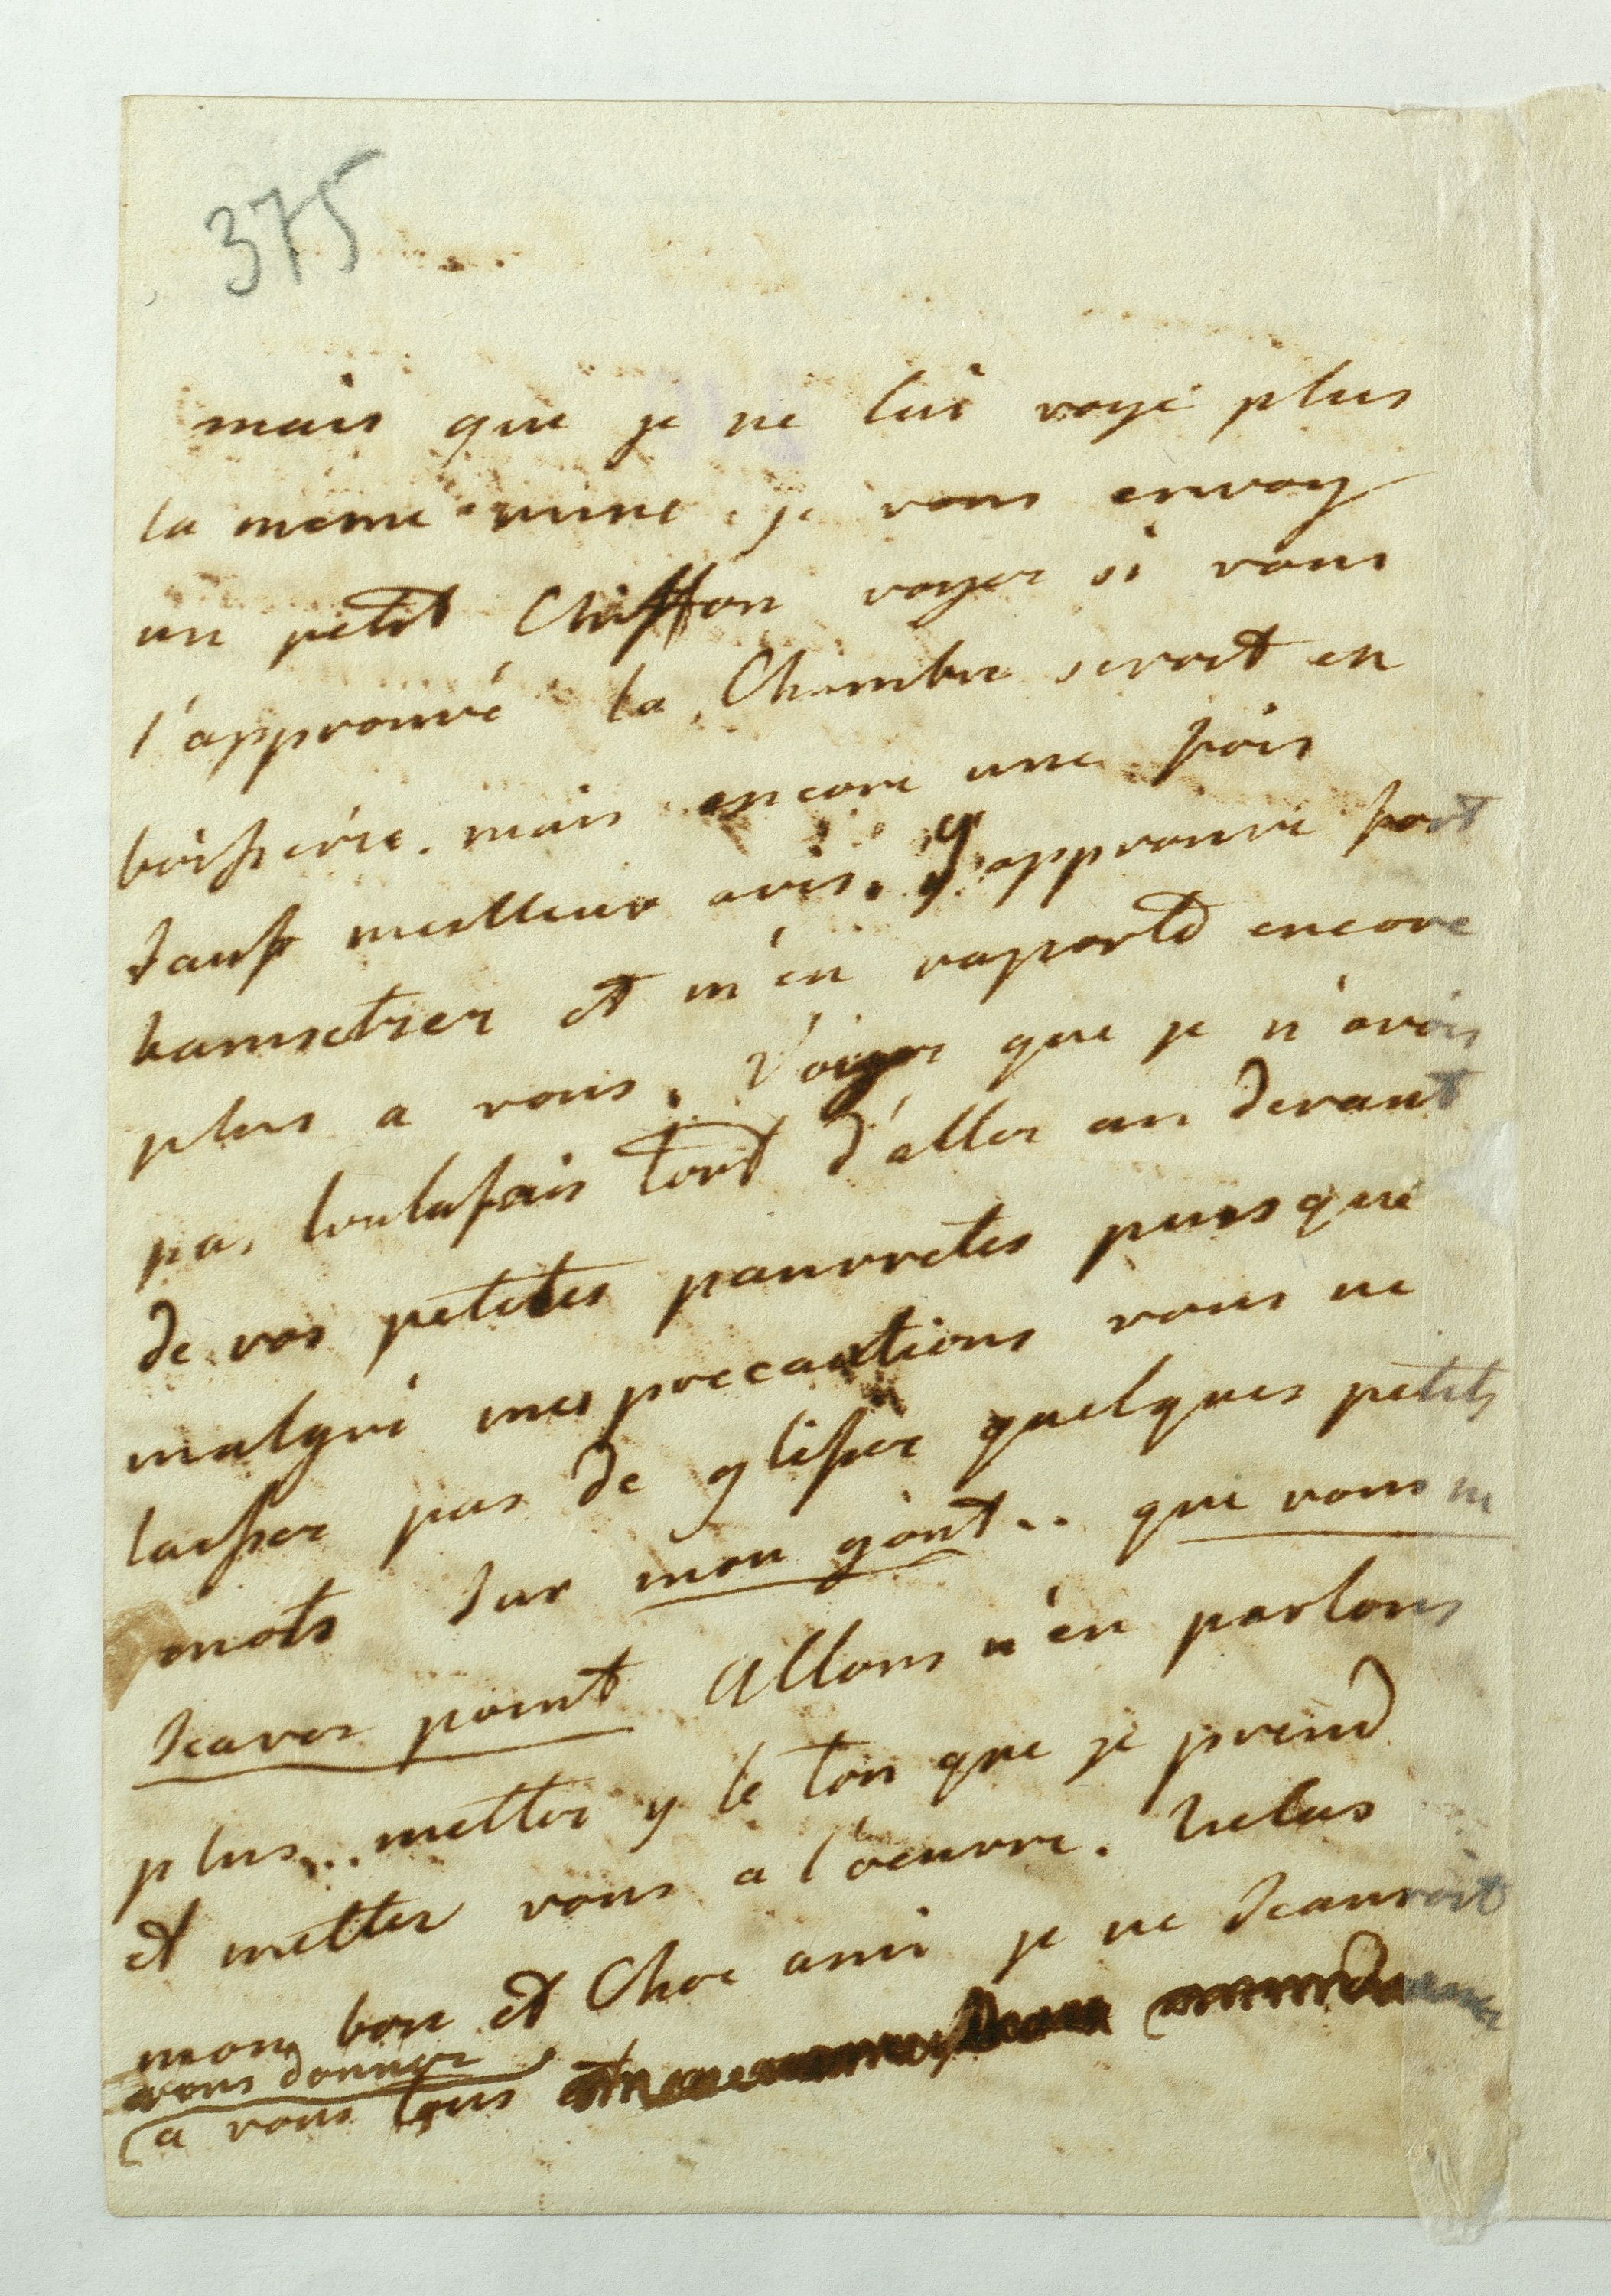 375
mais que je ne lui voye plus
la meme mine. je vous envoy
un petit Chiffon voyez si vous
l'approuvé la Chambre seroit en
boisserie. mais encore une fois
sauf meilleur avis. j'approuve fort
et m'en raporte encore
plus a vous. Voiyez que je n'avois
pas toutafais tort d'aller au devant
de vos petites pauvretes puisque
malgré mes precautions vous ne
laissez pas de glisser quelques petits
mots sur mon gout.. que vous ne
scavez point Allons n'en parlons
plus... mettez y le ton que je prend
et mettez vous a l'oeuvre. helas
mon bon et Cher ami je ne scauroit
vous donner
a vous tous